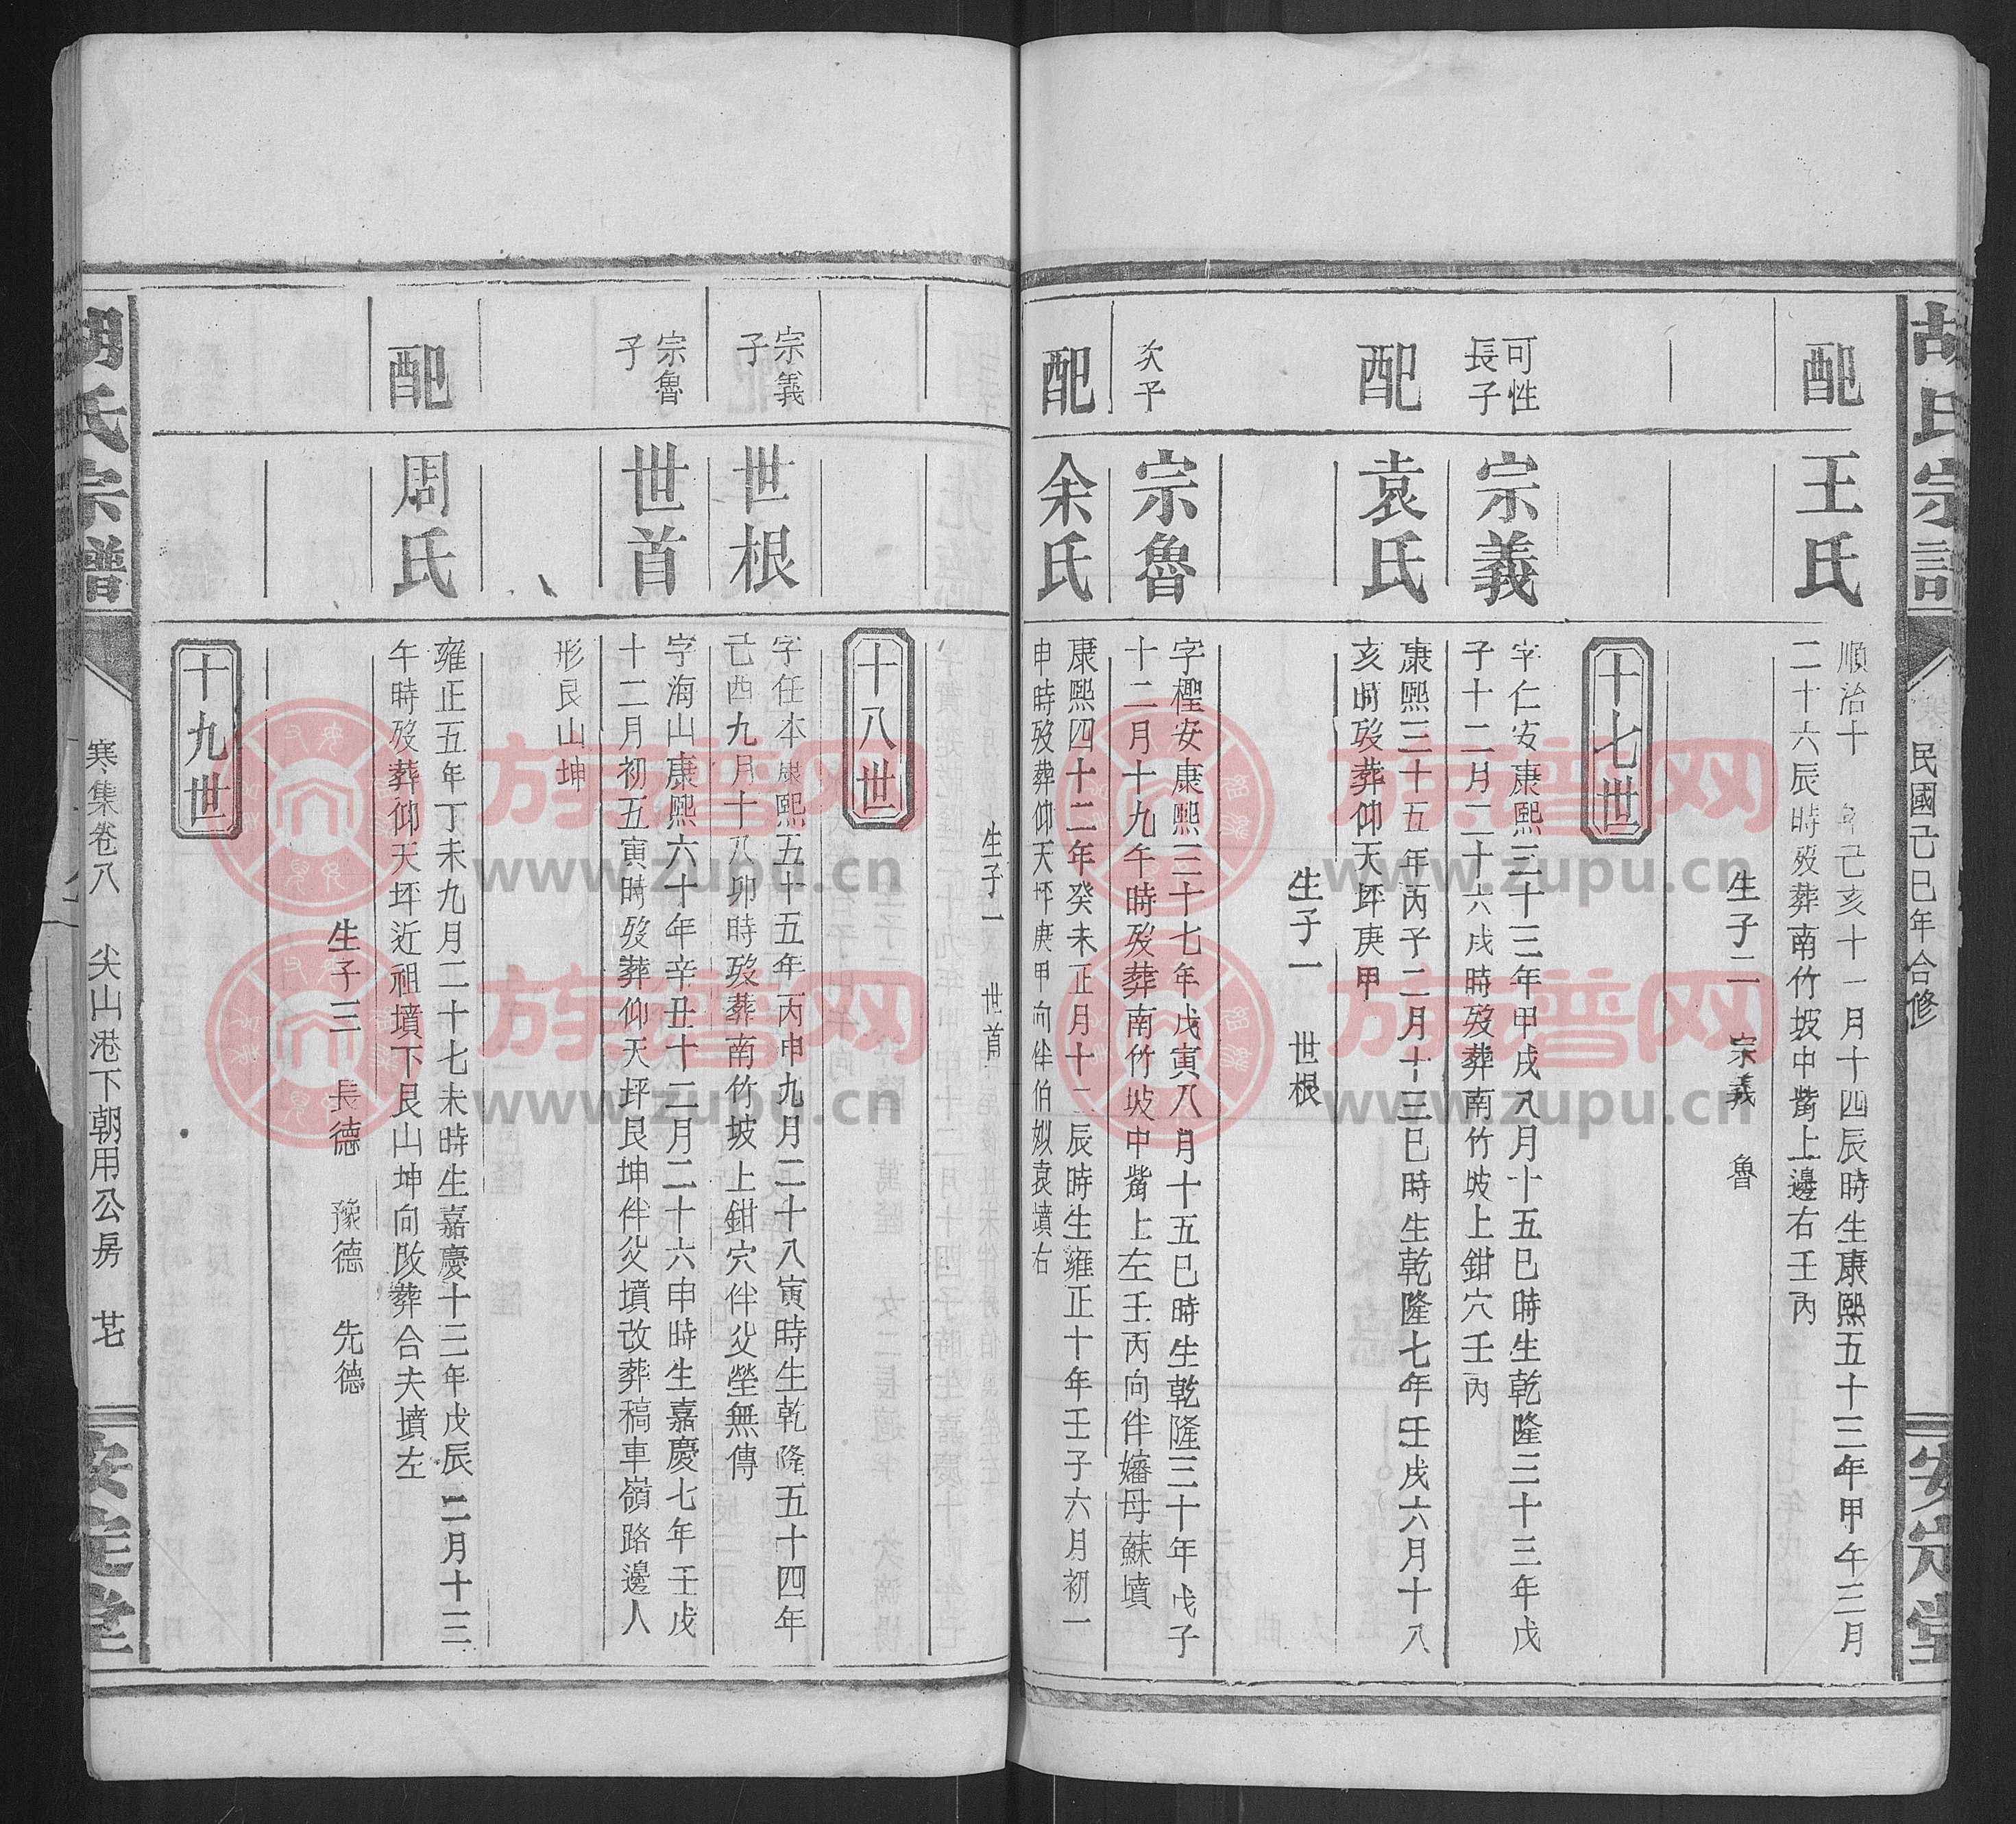 胡氏宗譜
民國己巳年合修
安定堂
配
王氏
順治十 年己亥十一月十四辰時生康熙五十三年甲午三月
二十六辰時歿葬南竹坡中觜上邊右壬丙
生子二 宗義 魯
十七世
可性
長子
宗義
字仁安康熙三十三年甲戌八月十五巳時生乾隆三十三年戊
子十二月二十六戌時歿葬南竹坡上鉗穴壬丙
配
袁氏
康熙三十五年丙子二月十三巳時生乾隆七年壬戌六月十八
亥時歿葬仰天坪庚甲
生子一 世根
次子
宗魯
字檉安康熙三十七年戊寅八月十五巳時生乾隆三十年戊子
十二月十九午時歿葬南竹坡中觜上左壬丙向伴嬸母蘇墳
配
余氏
康熙四十二年癸未正月十二辰時生雍正十年壬子六月初一
申時歿葬仰天坪庚甲向伴伯姒袁墳右
生子一 世首
十八世
宗義
子
世根
字任本康熙五十五年丙申九月二十八寅時生乾隆五十四年
己酉九月十八卯時歿葬南竹坡上鉗穴伴父塋無傳
宗魯
子
世首
字海山康熙六十年辛丑十二月二十六申時生嘉慶七年壬戌
十二月初五寅時歿葬仰天坪艮坤伴父墳改葬稿車嶺路邊人
形艮山坤
配
周氏
雍正五年丁未九月二十七未時生嘉慶十三年戊辰二月十三
午時歿葬仰天坪近祖墳下艮山坤向改葬合夫墳左
生子三 長德 豫德 先德
十九世
胡氏宗譜
寒集卷八 尖山港下朝用公房 廿七
安定堂
族譜网
www.zupu.cn
族譜网
www.zupu.cn
族譜网
www.zupu.cn
族譜网
www.zupu.cn